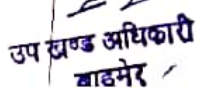 उप खण्ड अधिकारी
बाडमेर